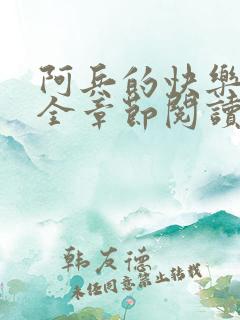 阿兵的快樂
全章節閱讀
韩友德
未经同意禁止转载